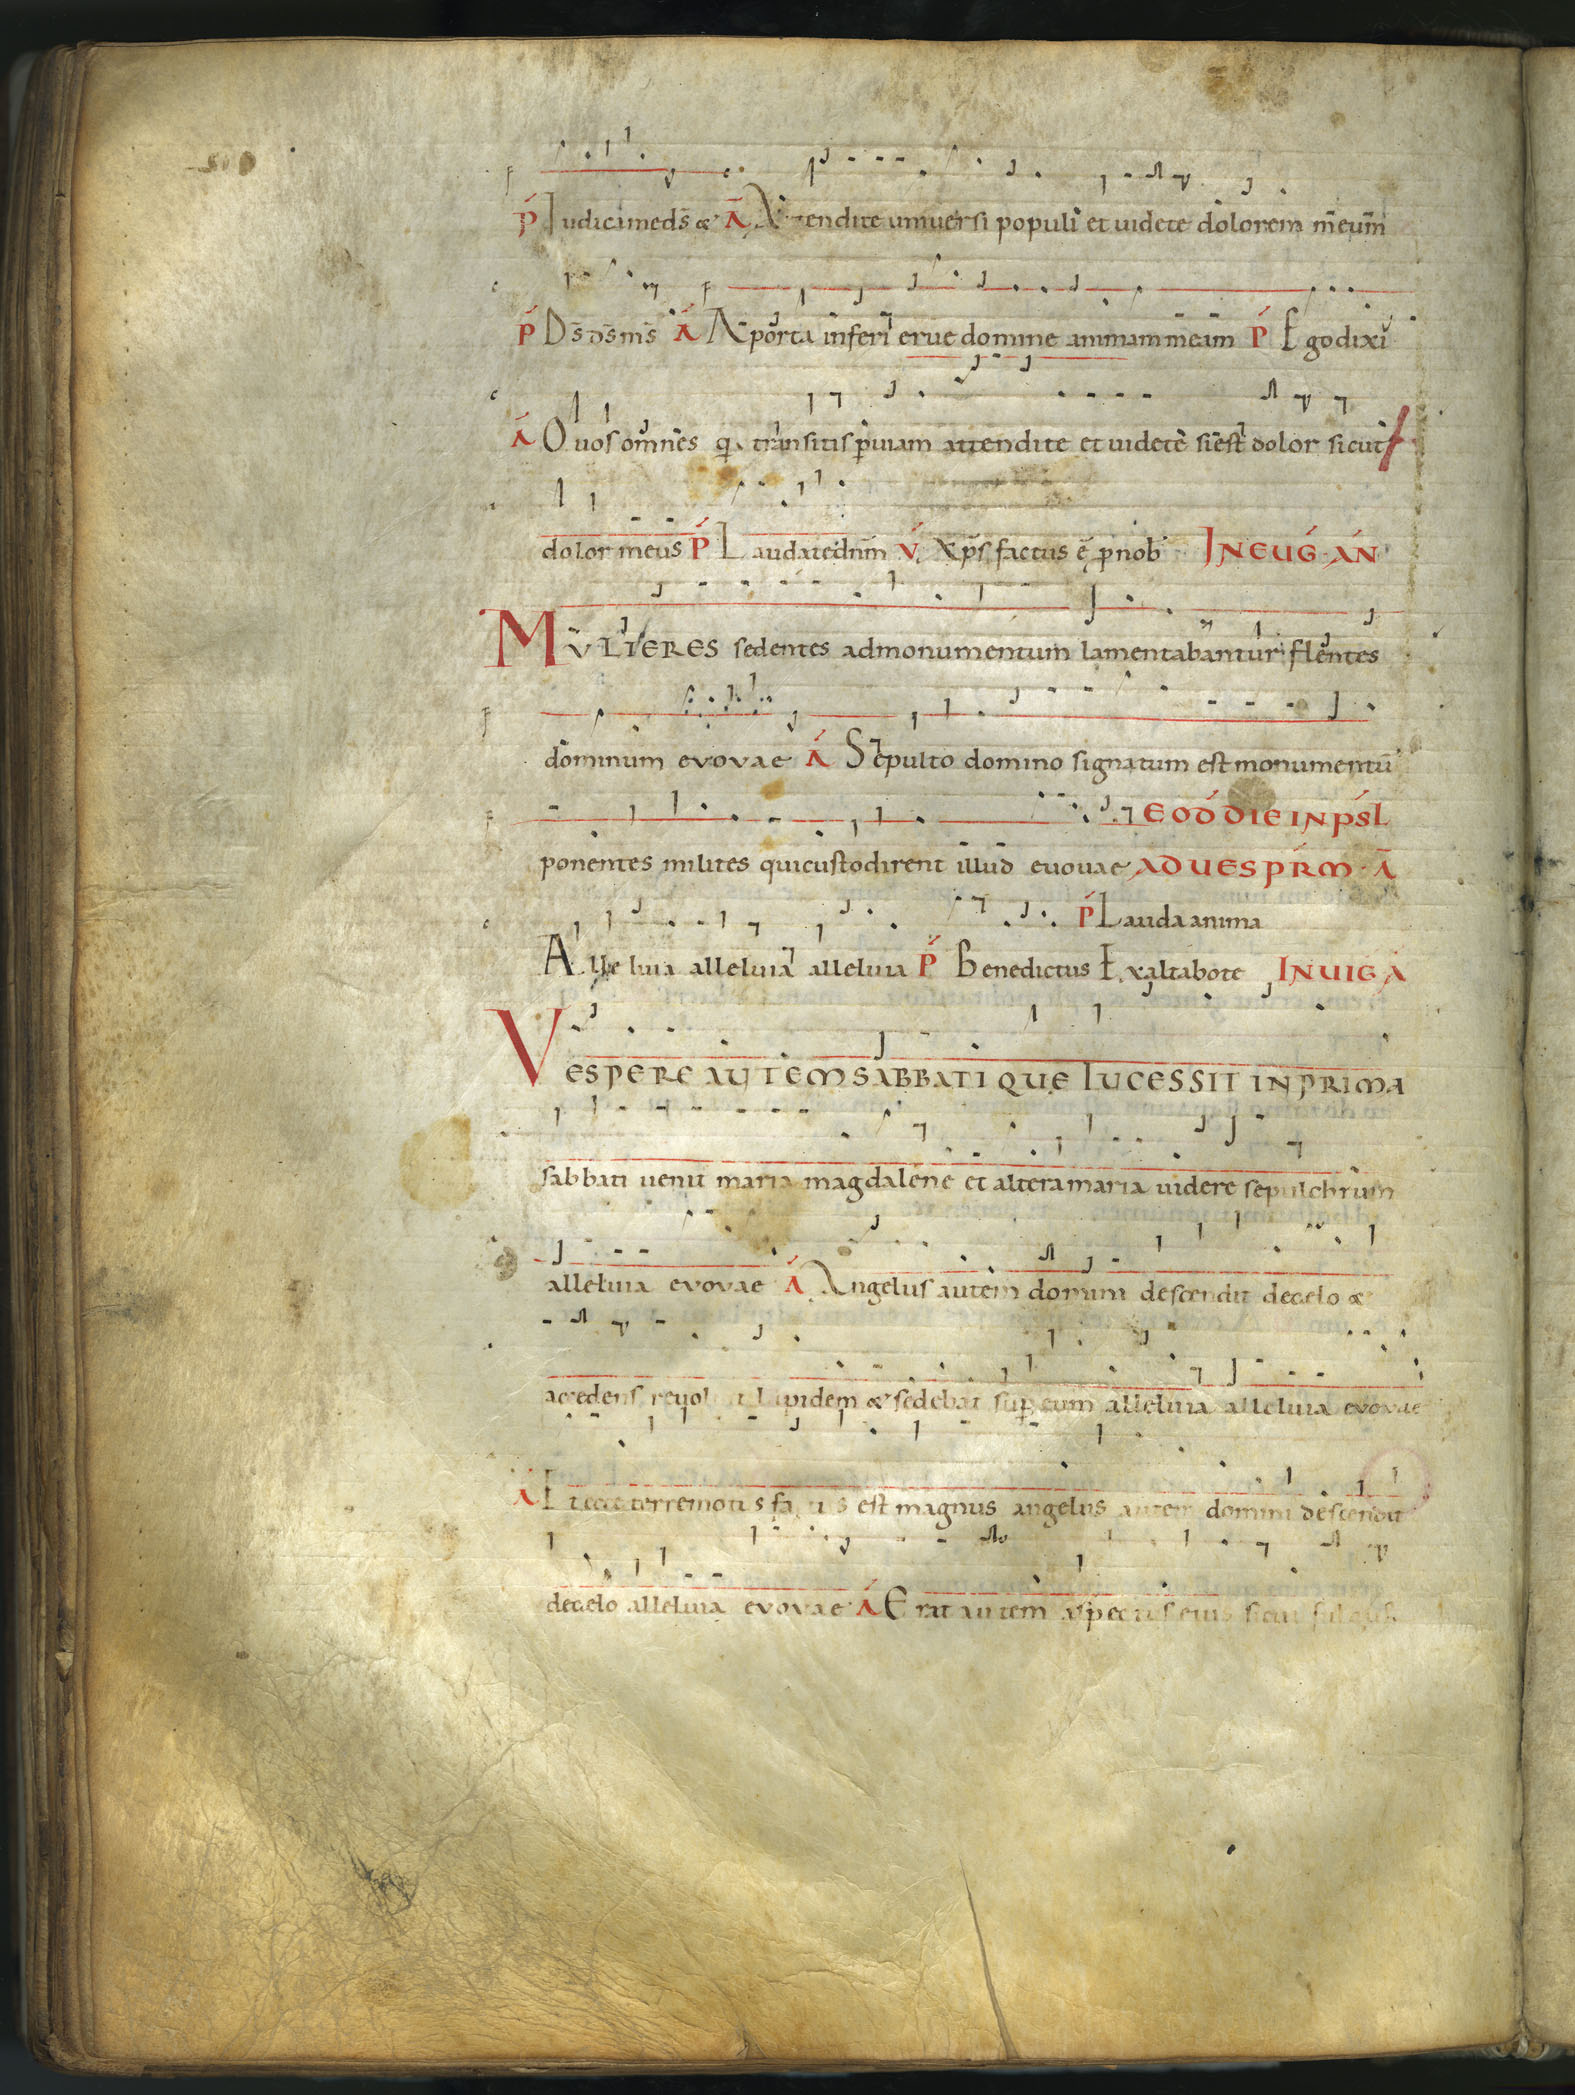 P̄ Iudicameds̄ & Ā Attendite uniuersi populi et uidete dolorem meum
P̄ Ds̄ ds̄ ms̄ Ā A porta inferi erue domine animam meam P̄ Ego dixi
Ā O uos omnes qui transitis p̄ uiam attendite et uidete si est dolor sicut
dolor meus P̄ Laudate dn̄m V̄ Xp̄s factus ē p nob IN EUG ĀN
MVLIERES sedentes ad monumentum lamentabantur flentes
dominum evovae Ā Sepulto domino signatum est monumentū
EOD DIE IN PSL
ponentes milites qui custodirent illud euouae AD UESPRM Ā
P̄ Lauda anima
Alleluia alleluia alleluia P̄ Benedictus Exaltabo te IN UIG A
VESPERE AUTEM SABBATI QUE LUCESSIT IN PRIMA
sabbati uenit maria magdalene et altera maria uidere sepulchrum
alleluia evovae Ā Angelus autem domini descendit de celo &
accedens lapidem & sedebat sup eum alleluia alleluia evovae
Ā Et ecce terremotus est magnus angelus autem domini descendit
de celo alleluia evovae Ā Erat autem aspectus eius sicut